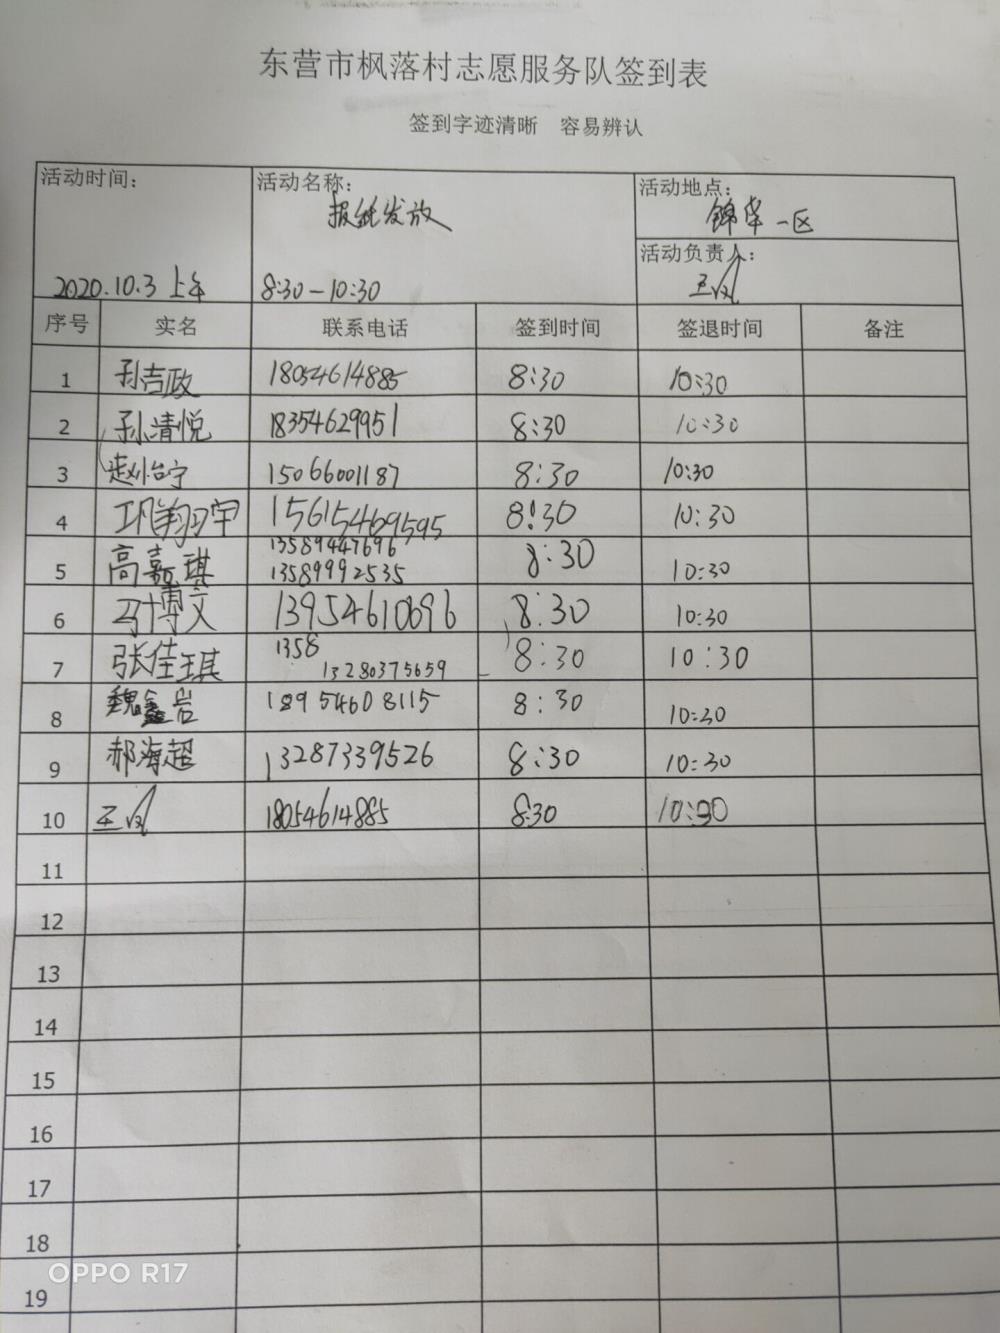 东营市枫落村志愿服务队签到表
签到字迹清晰 容易辨认
活动时间： 活动名称： 活动地点：
报纸发放 锦华一区
活动负责人：
2020.10.3 上午 8:30－10:30 王凤
序号 实名 联系电话 签到时间 签退时间 备注
1 孙吉政 18054614885 8:30 10:30
2 孙清悦 18354629951 8:30 10:30
3 赵怡宁 15066001187 8:30 10:30
4 巩翔宇 15615469595 8:30 10:30
13589447696
5 高嘉琪 13589992535 8:30 10:30
6 马博文 13954610696 8:30 10:30
1358
7 张佳琪 13280375659 8:30 10:30
8 魏鑫岩 18954608115 8:30 10:30
9 郝海超 13287339526 8:30 10:30
10 王凤 18054614885 8:30 10:30
11
12
13
14
15
16
17
18
OPPO R17
19